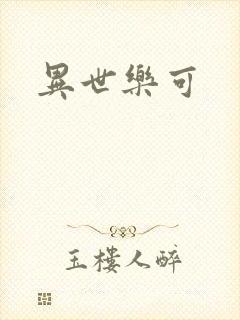 異世樂可
玉樓人醉